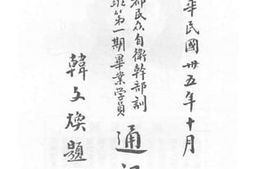 華民國卅五年十月
部民众自衛幹部訓
班第一期畢業学員
通
韓文煥題